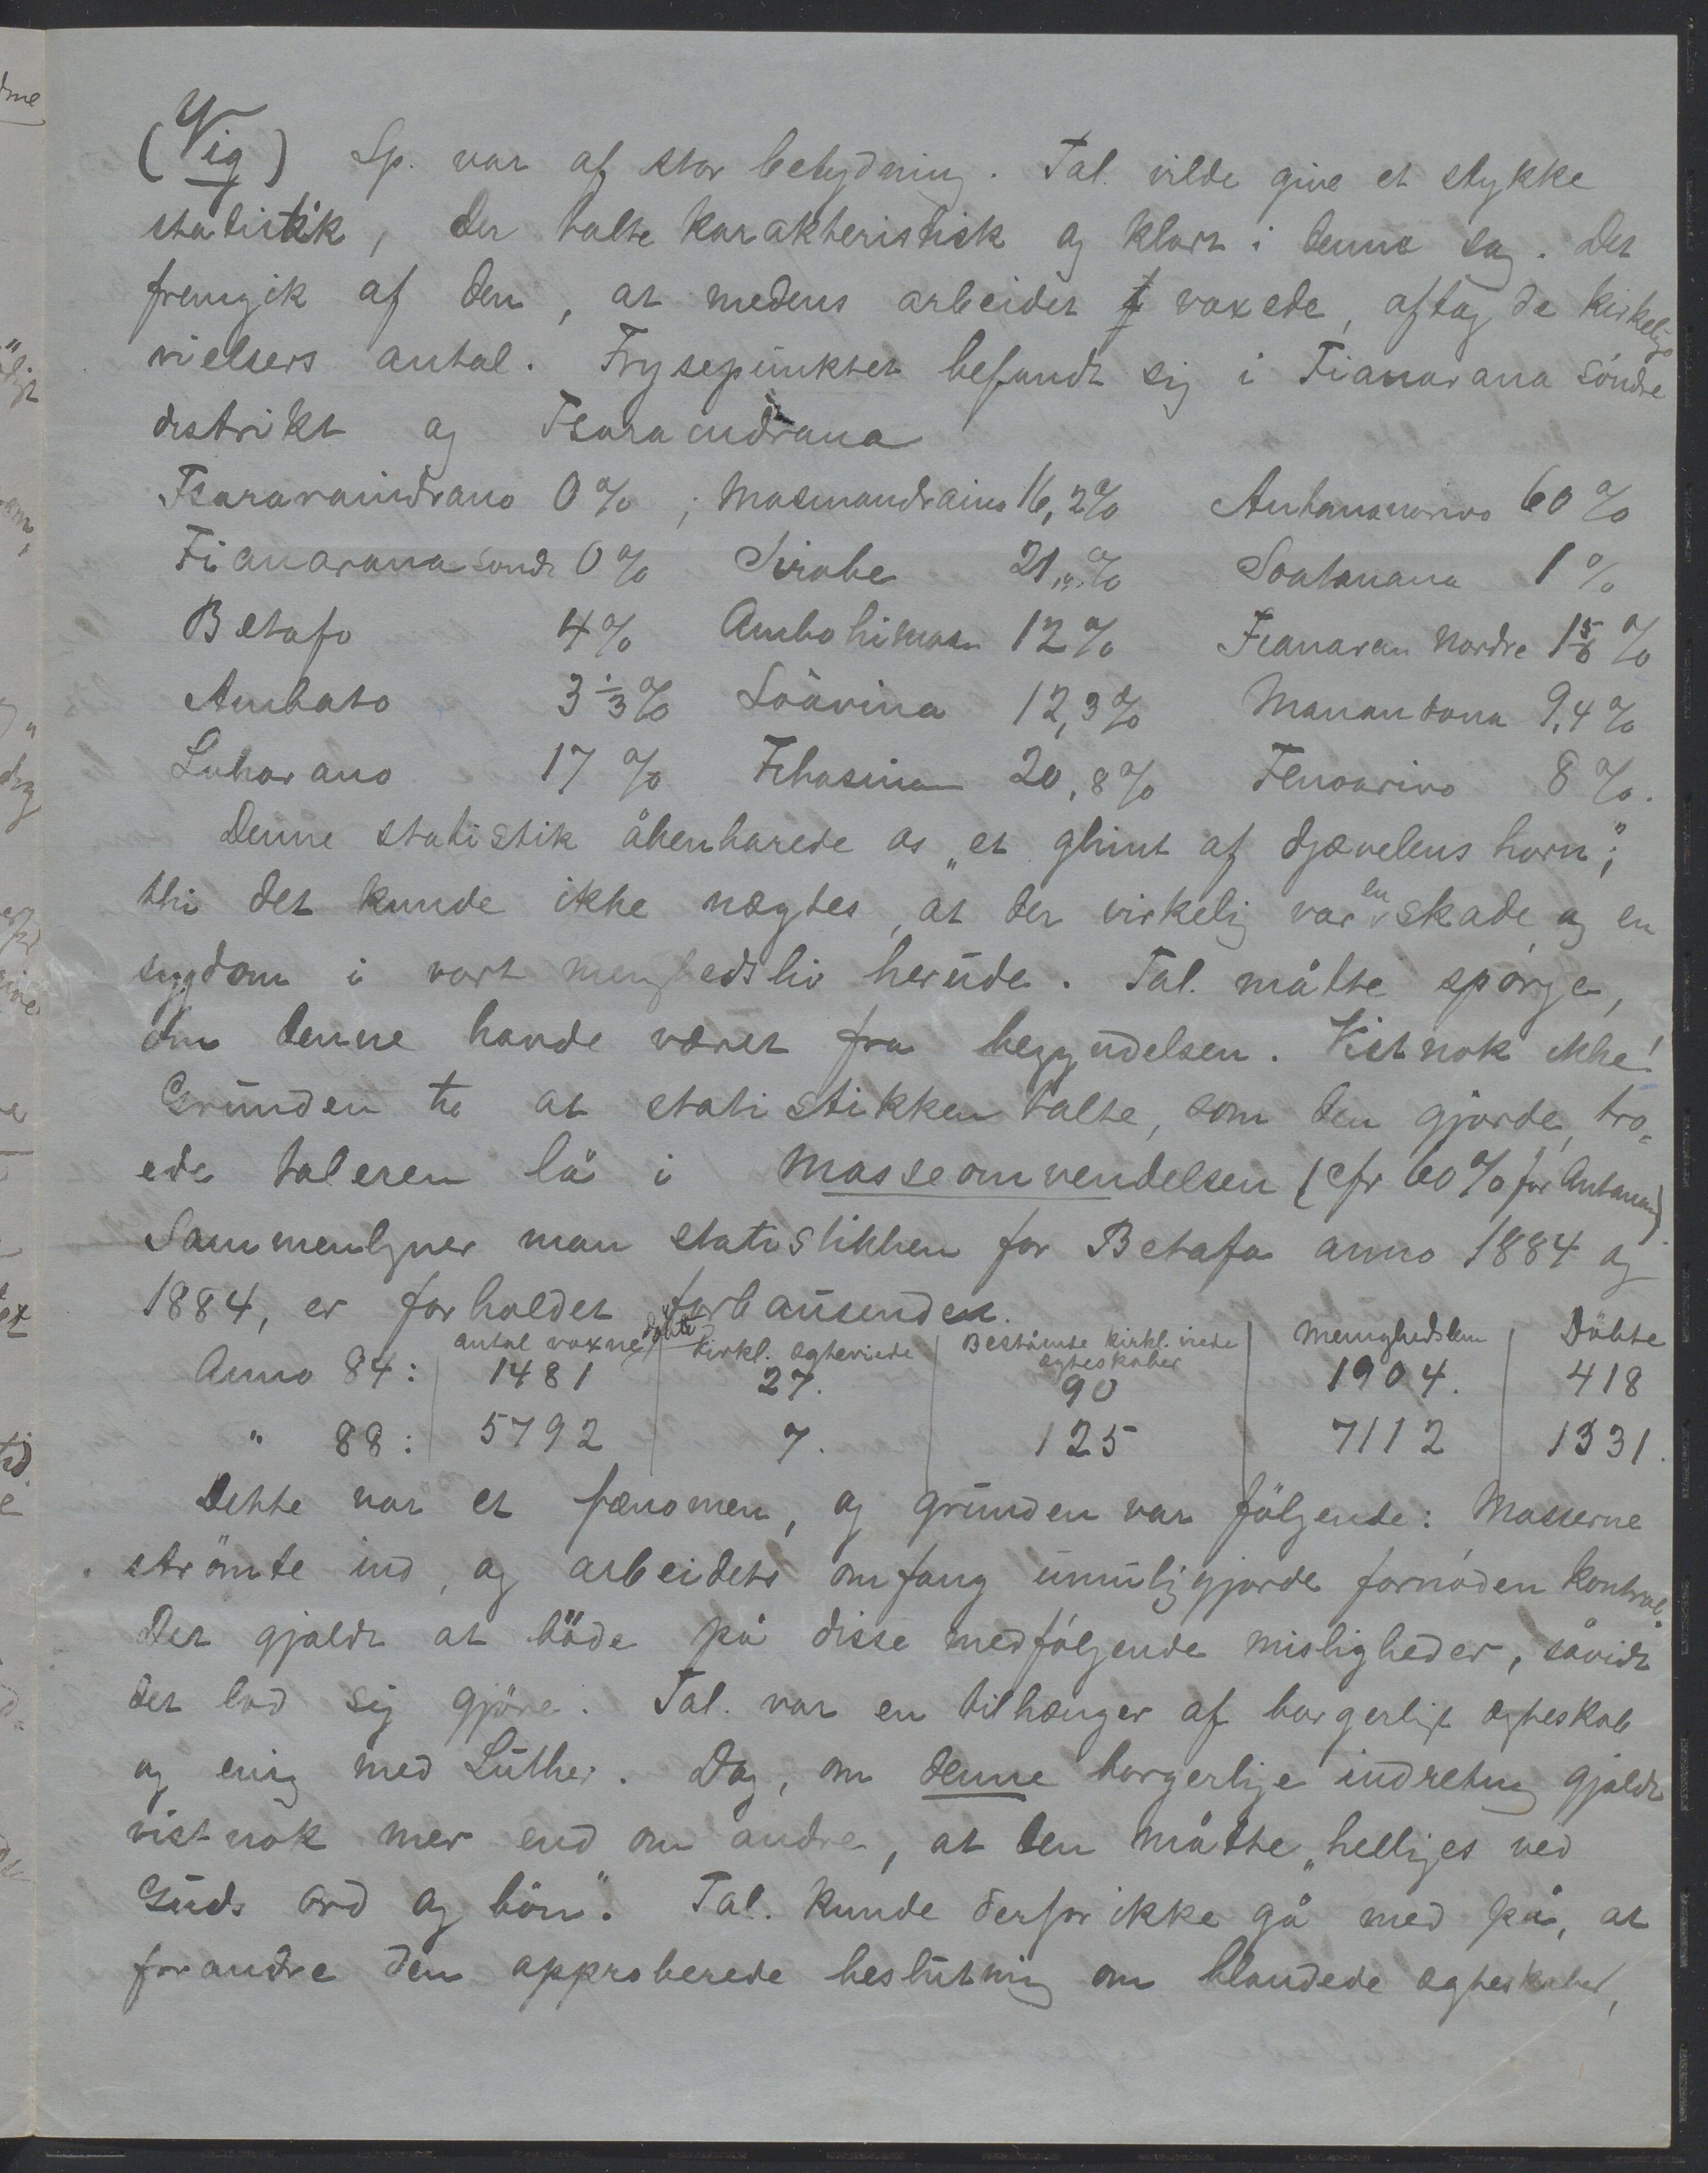 (Vig) Sp. var af stor betydning. Tal. vilde give et stykke
statistik, der talte karakteristisk og klart i denne sag. Det
fremgik af den, at medens arbeidet voxede, aftog de kirkelige
vielsers antal. Frysepunktet befandt sig i Fianarana söndre
distrikt og Tsaraindrana
Tsararaindrano 0% ; Masinandraino 16,2% Antananarivo 60%
Fianarana söndr 0% Sirabe 21,% Soatanana 1%
Betafo 4% Ambohimas 12% Fianaran Nordre 1 5/6 %
Ambato 3 1/3% Soavina 12,3% Manandona 9,4%
Loharano 17% Fihasina 20,8% Fenoarivo 8%.
Denne statistik åbenbarede os „et glimt af djævelens horn";
thi det kunde ikke nægtes, at der virkelig var en skade og en
sygdom i vort menighedsliv herude. Tal. måtte spørge,
om denne havde været fra begyndelsen. Vistnok ikke!
Grunden til at statistikken talte, som den gjorde, tro-
ede taleren lå i Masseomvendelsen (cfr 60% for Antanan)
Sammenligner man statistikken for Betafo anno 1884 og
1884, er forholdet forbausende.
antal voxne döbte | Kirkl. egteviede | Bestående kirkl. viede egteskaber | Menighedslem | Döbte
Anno 84: | 1481 | 27. | 90 | 1904. | 418
" 88: | 5792 | 7. | 125 | 7112 | 1331.
Dette var et fænomen, og grunden var fölgende: Masserne
strömte ind, og arbeidets omfang umuligjorde fornöden kontrol.
Det gjaldt at böde på disse medfölgende misligheder, såvidt
det lod sig gjöre. Tal. var en tilhænger af borgerligt egteskab
og enig med Luther. Dog, om denne borgerlige indretning gjaldt
vistnok mer end om andre, at den måtte „helliges ved
Guds ord og bön". Tal. kunde derfor ikke gå med på, at
forandre den approberede beslutning om blandede egteskaber,